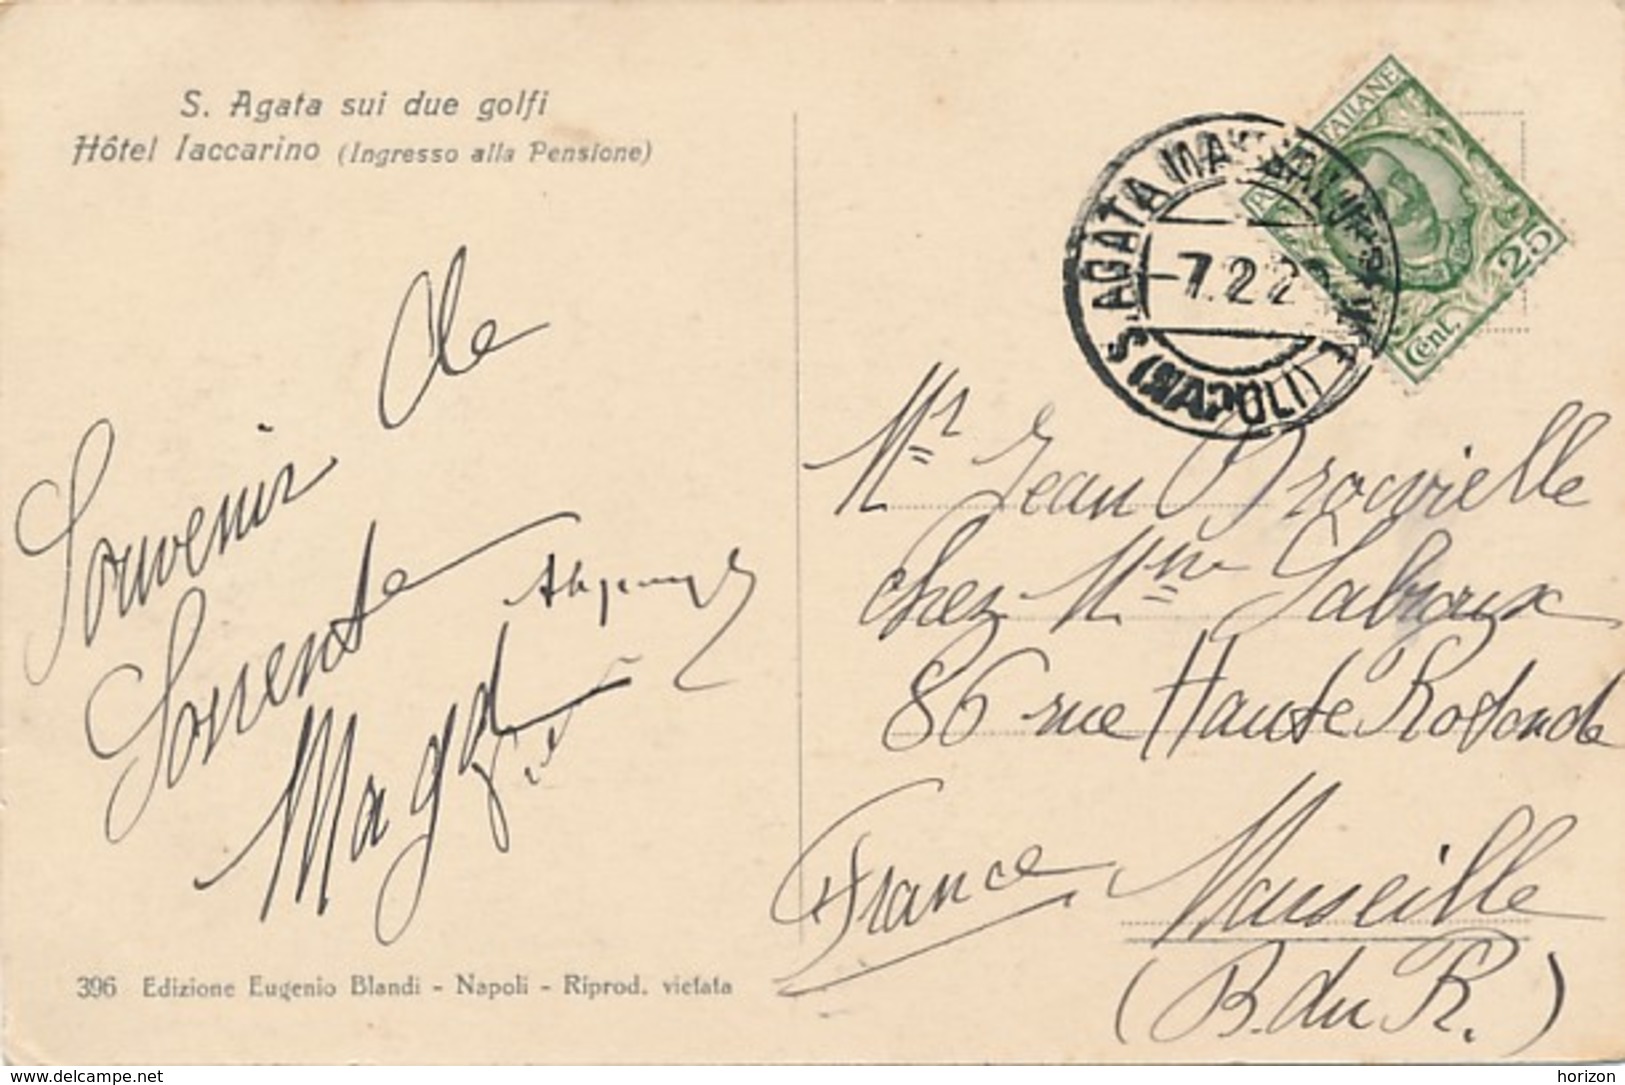 S. Agata sui due golfi
Hôtel Iaccarino (Ingresso alla Pensione)
Souvenir de
Sorrente
Magd
396 Edizione Eugenio Blandi - Napoli - Riprod. vietata
S. AGATA
-7.2.2
(NAPOLI)
ITALIANE
Cent. 25
Mr Jean Drouvielle
chez Mme Sabroux
86 rue Haute Rotonde
Marseille
France
(B. du R.)
delcampe.net
horizon